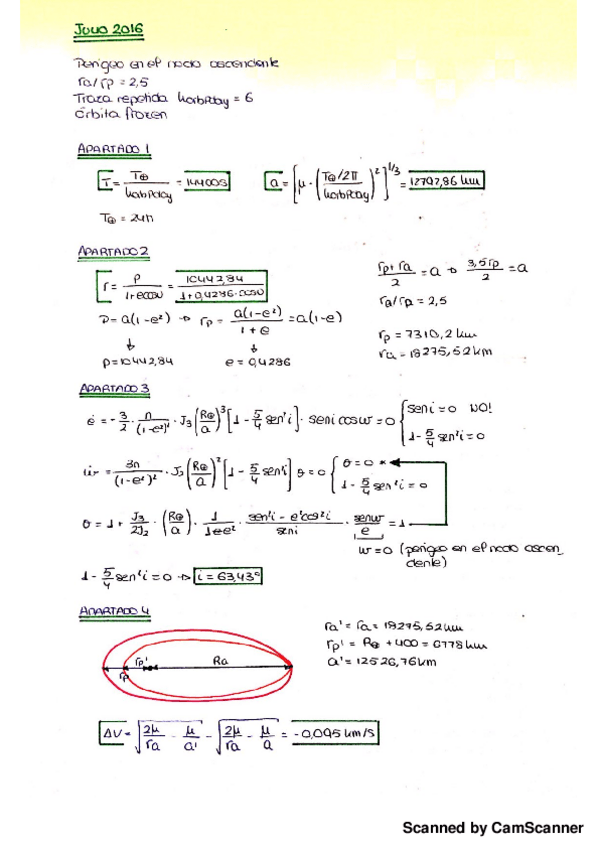 Julio 2016
Perigeo en el nodo ascendente
ra/rp = 2,5
Traza repetida korbPday = 6
Órbita frozen
APARTADO 1
T = T⊕/korbPday = 14400 s
a = [μ · ((T⊕/2π)/korbPday)²]^1/3 = 12797,86 km
T⊕ = 24h
APARTADO 2
r = p/(1+ecosυ) = 10442,84/(1+0,4286·cosυ)
(rp + ra)/2 = a → 3,5rp/2 = a
ra/rp = 2,5
p = a(1-e²) → rp = a(1-e²)/(1+e) = a(1-e)
rp = 7310,2 km
ra = 18275,52 km
p = 10442,84
e = 0,4286
APARTADO 3
ė = -3/2 · n/(1-e²)² · J3 (R⊕/a)³ [1 - 5/4 sen²i] · seni cosω = 0 { seni = 0 NO!
1 - 5/4 sen²i = 0
ω̇ = 3n/(1-e²)² · J2 (R⊕/a)² [1 - 5/4 sen²i] θ = 0 { θ = 0 *
1 - 5/4 sen²i = 0
θ = 1 + J3/2J2 · (R⊕/a) · 1/(1-e²) · (sen²i - e²cos²i)/seni · senω/e = 1
ω = 0 (perigeo en el nodo ascen
dente)
1 - 5/4 sen²i = 0 → i = 63,43°
APARTADO 4
ra' = ra = 18275,52 km
rp' = R⊕ + 400 = 6778 km
a' = 12526,76 km
rp'
Ra
rp
ΔV = √(2μ/ra - μ/a') - √(2μ/ra - μ/a) = -0,095 km/s
Scanned by CamScanner